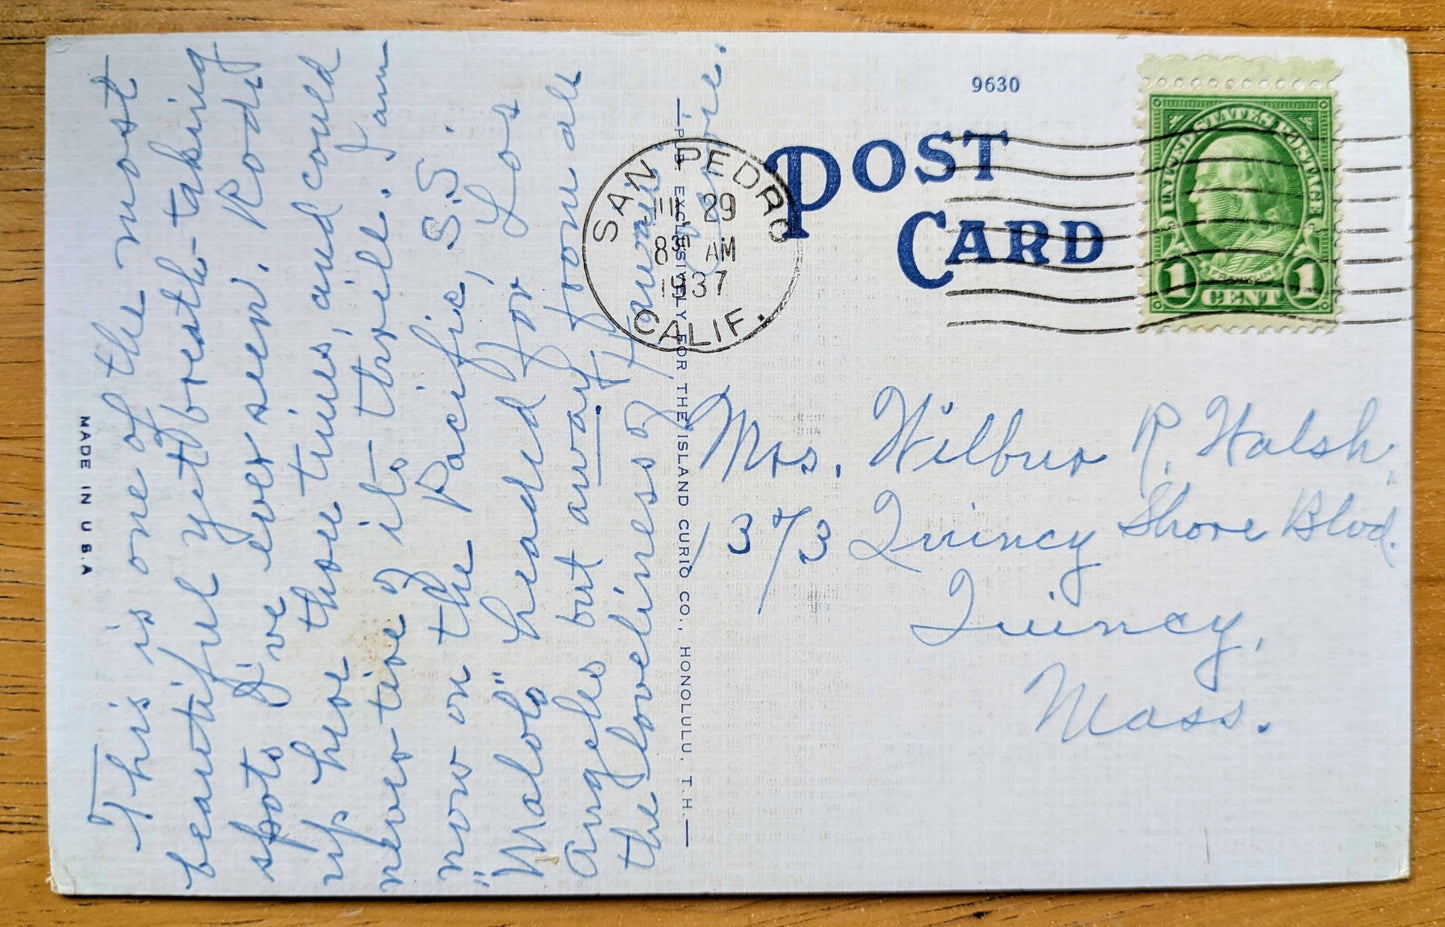 MADE IN U.S.A
This is one of the most
beautiful yet breath-taking
spots I've ever seen. Rode
up here three times, and could
never tire of its thrill. I am
now on the Pacific, S.S.
"Malolo" headed for Los
Angeles but away from all
the loveliness of Hawaii.
PUB. EXCLUSIVELY FOR THE ISLAND CURIO CO., HONOLULU, T. H.
9630
POST
CARD
SAN PEDRO
JUL 29
8 30 AM
1937
CALIF.
UNITED STATES POSTAGE
FRANKLIN
1 CENT 1
Mrs. Wilbur R. Walsh,
1373 Quincy Shore Blvd.
Quincy,
Mass.